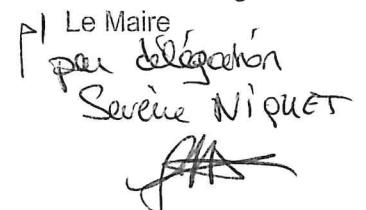 P/ Le Maire
par délégation
Sevène NiQUET